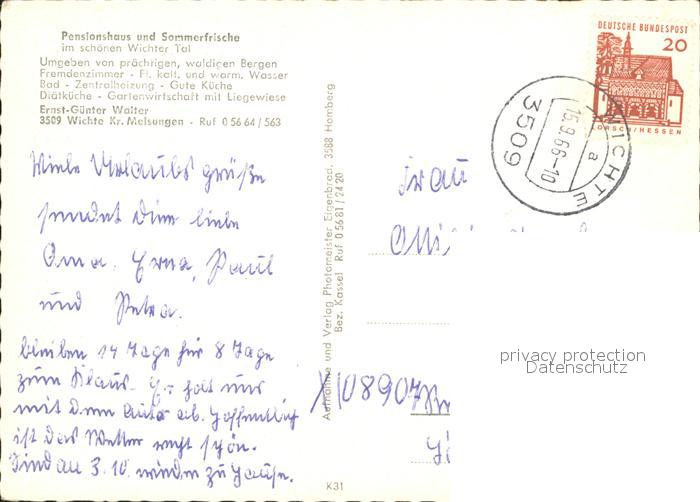 Pensionshaus und Sommerfrische
im schönen Wichter Tal
Umgeben von prächtigen, waldigen Bergen
Fremdenzimmer - Fl. kalt. und warm. Wasser
Bad - Zentralheizung - Gute Küche
Diätküche - Gartenwirtschaft mit Liegewiese
Ernst-Günter Walter
3509 Wichte Kr. Melsungen - Ruf 0 56 64 / 563
Viele Urlaubsgrüße
sendet Dir liebe
Oma, Erna, Paul
und Petra.
bleiben 14 Tage für 8 Tage
zum Klaus. Er holt uns
mit dem Auto ab. Hoffentlich
ist das Wetter recht schön.
Sind am 3.10. wieder zu Hause.
Aufnahme und Verlag Photomeister Eigenbrod, 3588 Homberg
Bez. Kassel Ruf 0 56 81 / 24 20
K31
DEUTSCHE BUNDESPOST
20
LORSCH/HESSEN
WICHTE
15.9.66-10
a
3509
Frau
privacy protection
Datenschutz